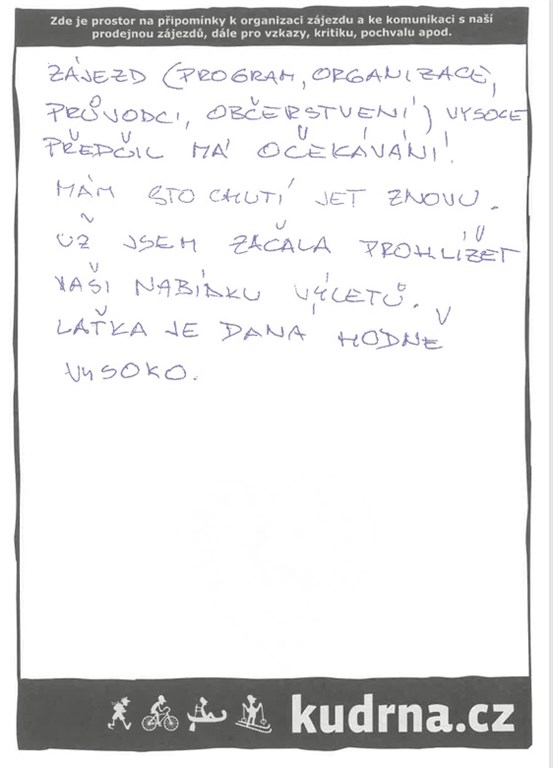 Zde je prostor na připomínky k organizaci zájezdu a ke komunikaci s naší
prodejnou zájezdů, dále pro vzkazy, kritiku, pochvalu apod.
ZÁJEZD (PROGRAM, ORGANIZACE,
PRŮVODCI, OBČERSTVENÍ) VYSOCE
PŘEDČIL MÁ OČEKÁVÁNÍ!
MÁM STO CHUTÍ JET ZNOVU.
UŽ JSEM ZAČALA PROHLÍŽET
VAŠI NABÍDKU VÝLETŮ.
LAŤKA JE DANÁ HODNĚ
VYSOKO.
kudrna.cz